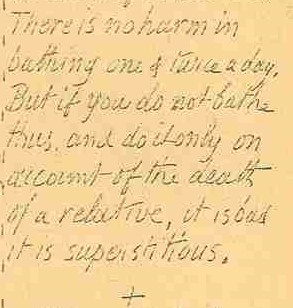 There is no harm in
bathing one & twice a day.
But if you do not bathe
thus, and do it only on
account of the death
of a relative, it is bad
it is superstitious.
+